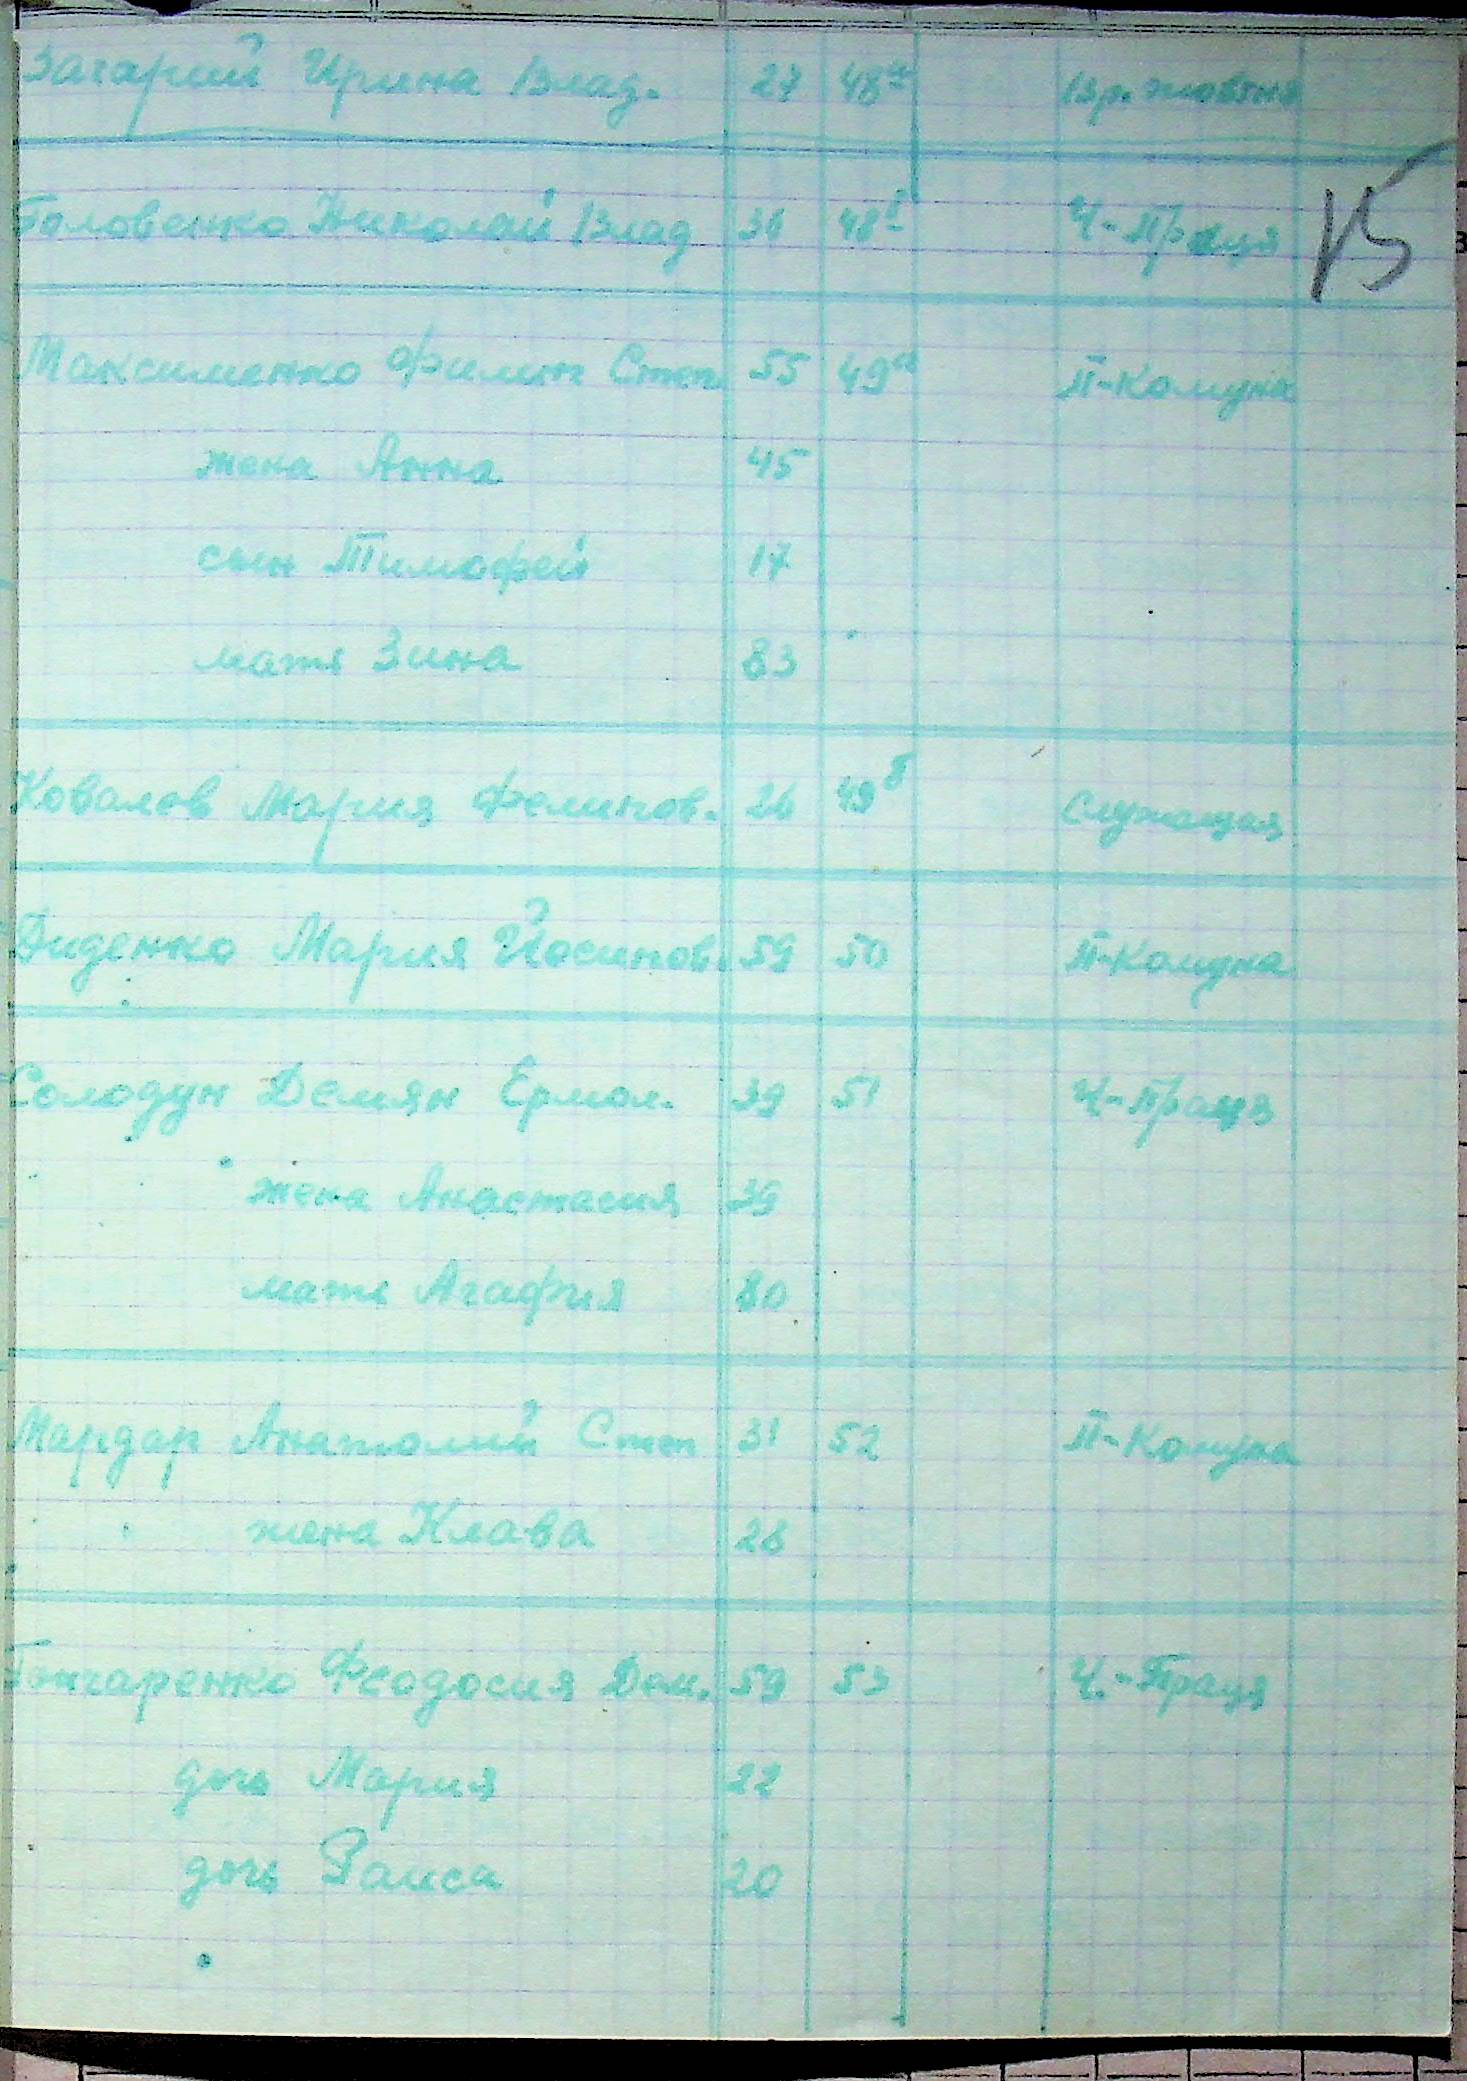 Загарий Ирина Влад. 27 48а Чр. жовтня
15
Головенко Николай Влад 36 48б Ч-Праця
Максименко Филип Степ 55 49а П-Комуна
жена Анна 45
сын Тимофей 17
мать Зина 83
Ковалев Мария Филипов. 26 49б Служащая
Диденко Мария Йосипов. 59 50 П-Комуна
Солодун Демян Ермол. 39 51 Ч-Праця
жена Анастасия 39
мать Агафия 80
Мардар Анатолий Степ 31 52 П-Комуна
жена Клава 28
Гончаренко Феодосия Дем. 59 53 Ч.-Праця
дочь Мария 22
дочь Раиса 20